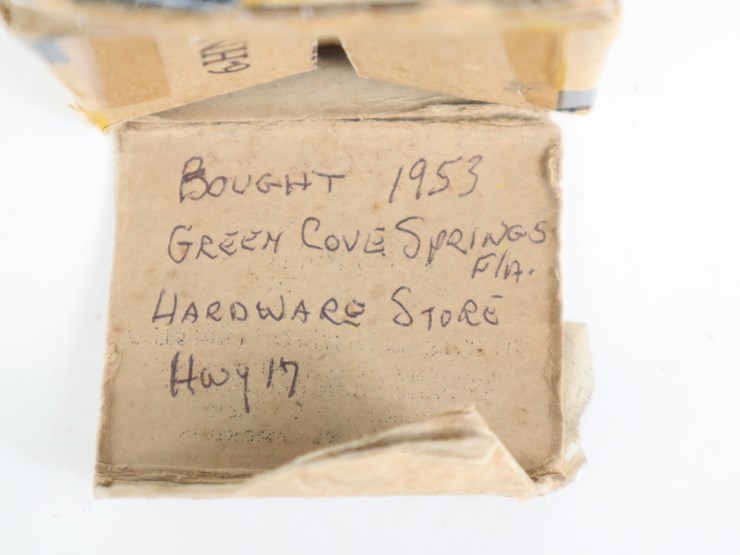 BOUGHT 1953
GREEN COVE SPRINGS
Fla.
HARDWARE STORE
Hwy 17